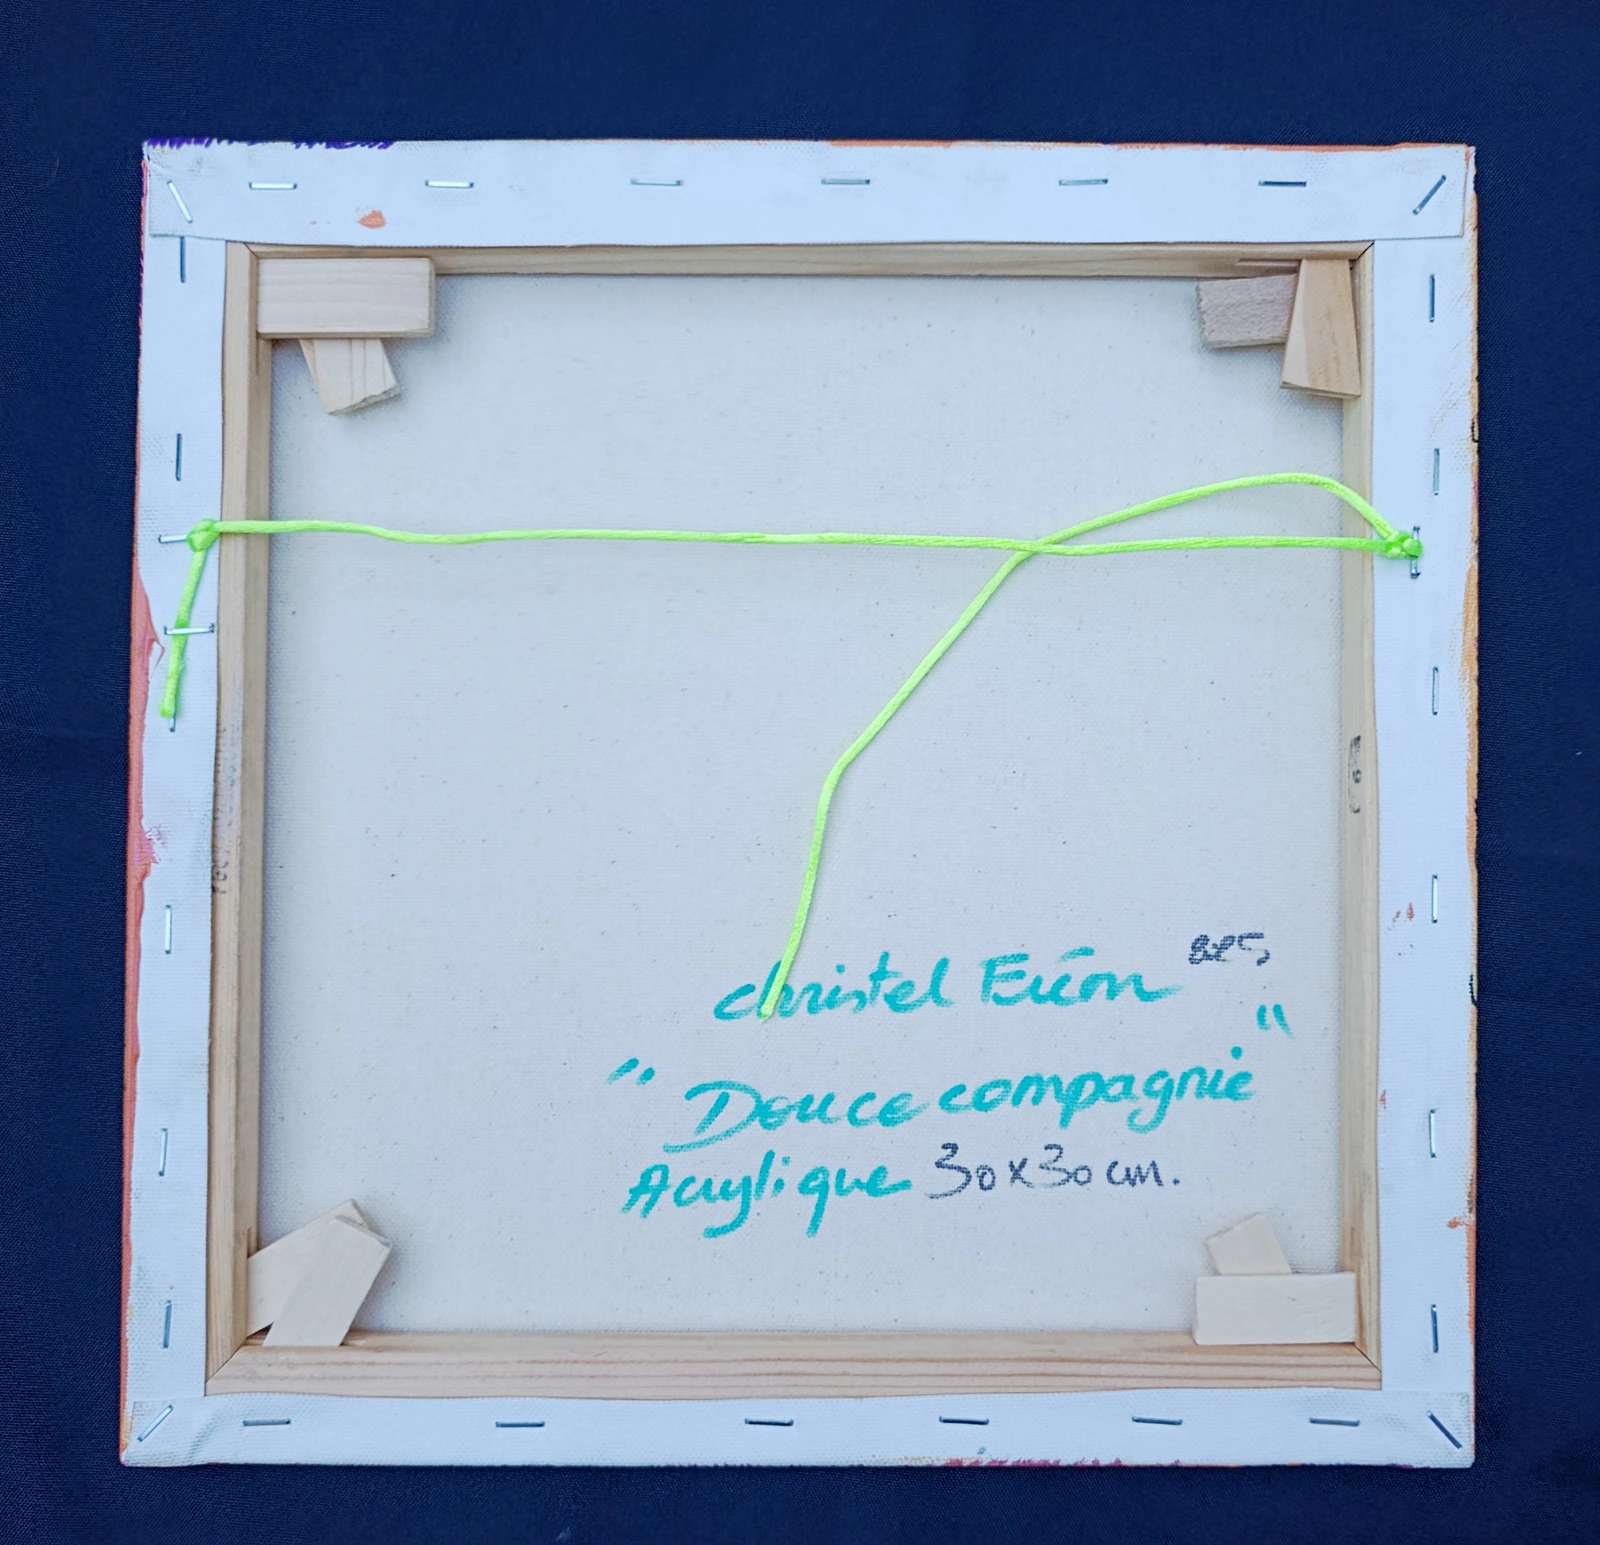 christel Eríon
" Douce compagnie "
Acrylique 30x30 cm.